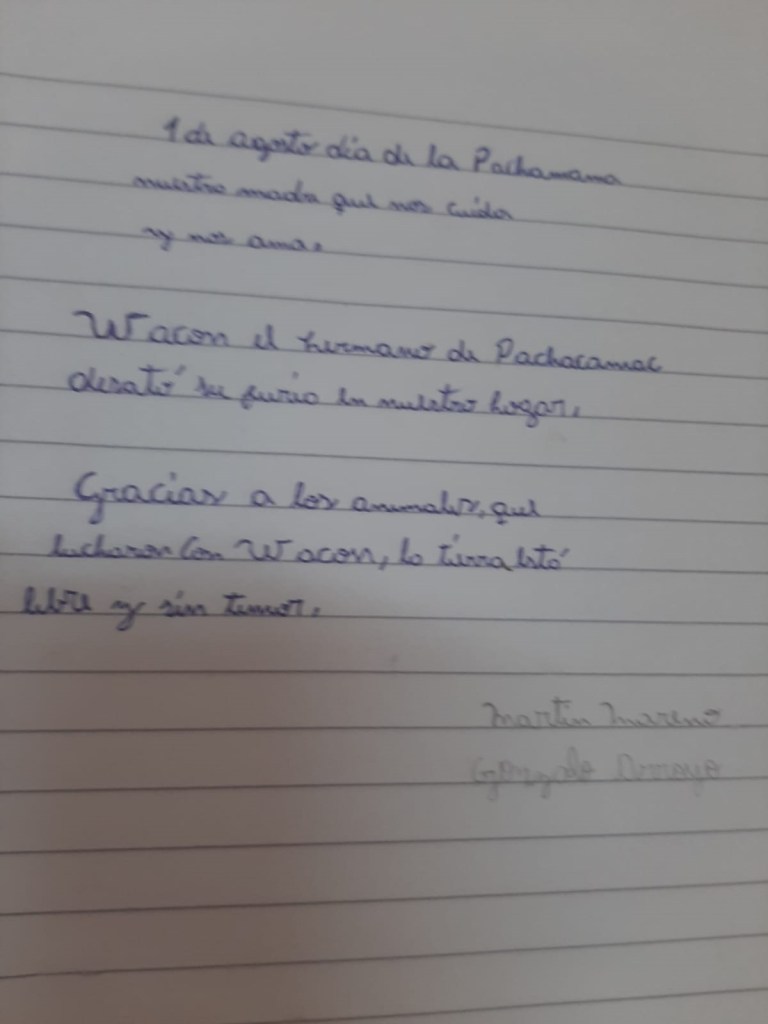 1 de agosto día de la Pachamama
nuestra madre que nos cuida
y nos ama.
Wacon el hermano de Pachacamac
desató su furia en nuestro hogar.
Gracias a los animales, que
lucharon con Wacon, la tierra está
libre y sin temor.
Martín Moreno
Gonzalo Arroyo